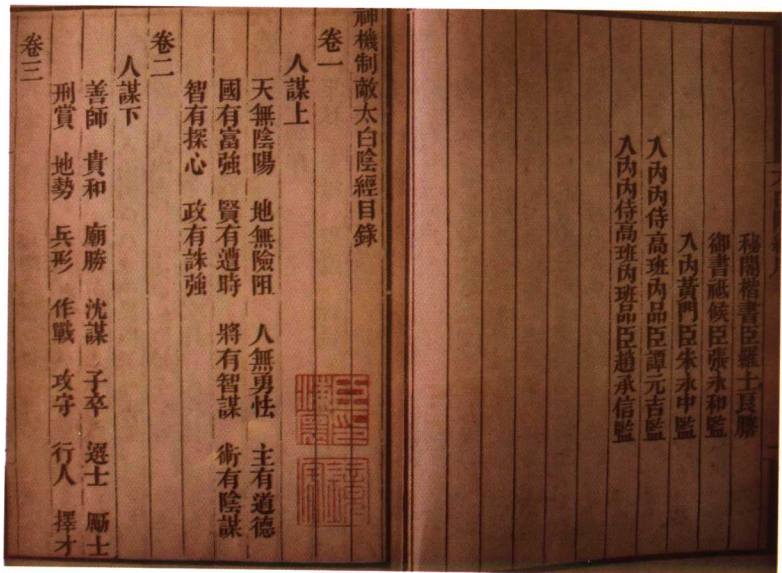 秘閣楷書臣羅士良謄
御書祗候臣張永和監
入內黃門臣朱永中監
入內內侍高班內品臣譚元吉監
入內內侍高班內班品臣趙承信監
神機制敵太白陰經目錄
卷一
人謀上
天無陰陽 地無險阻 人無勇怯 主有道德
國有富強 賢有遭時 將有智謀 術有陰謀
智有探心 政有誅強
卷二
人謀下
善師 貴和 廟勝 沈謀 子卒 選士 勵士
刑賞 地勢 兵形 作戰 攻守 行人 擇才
卷三